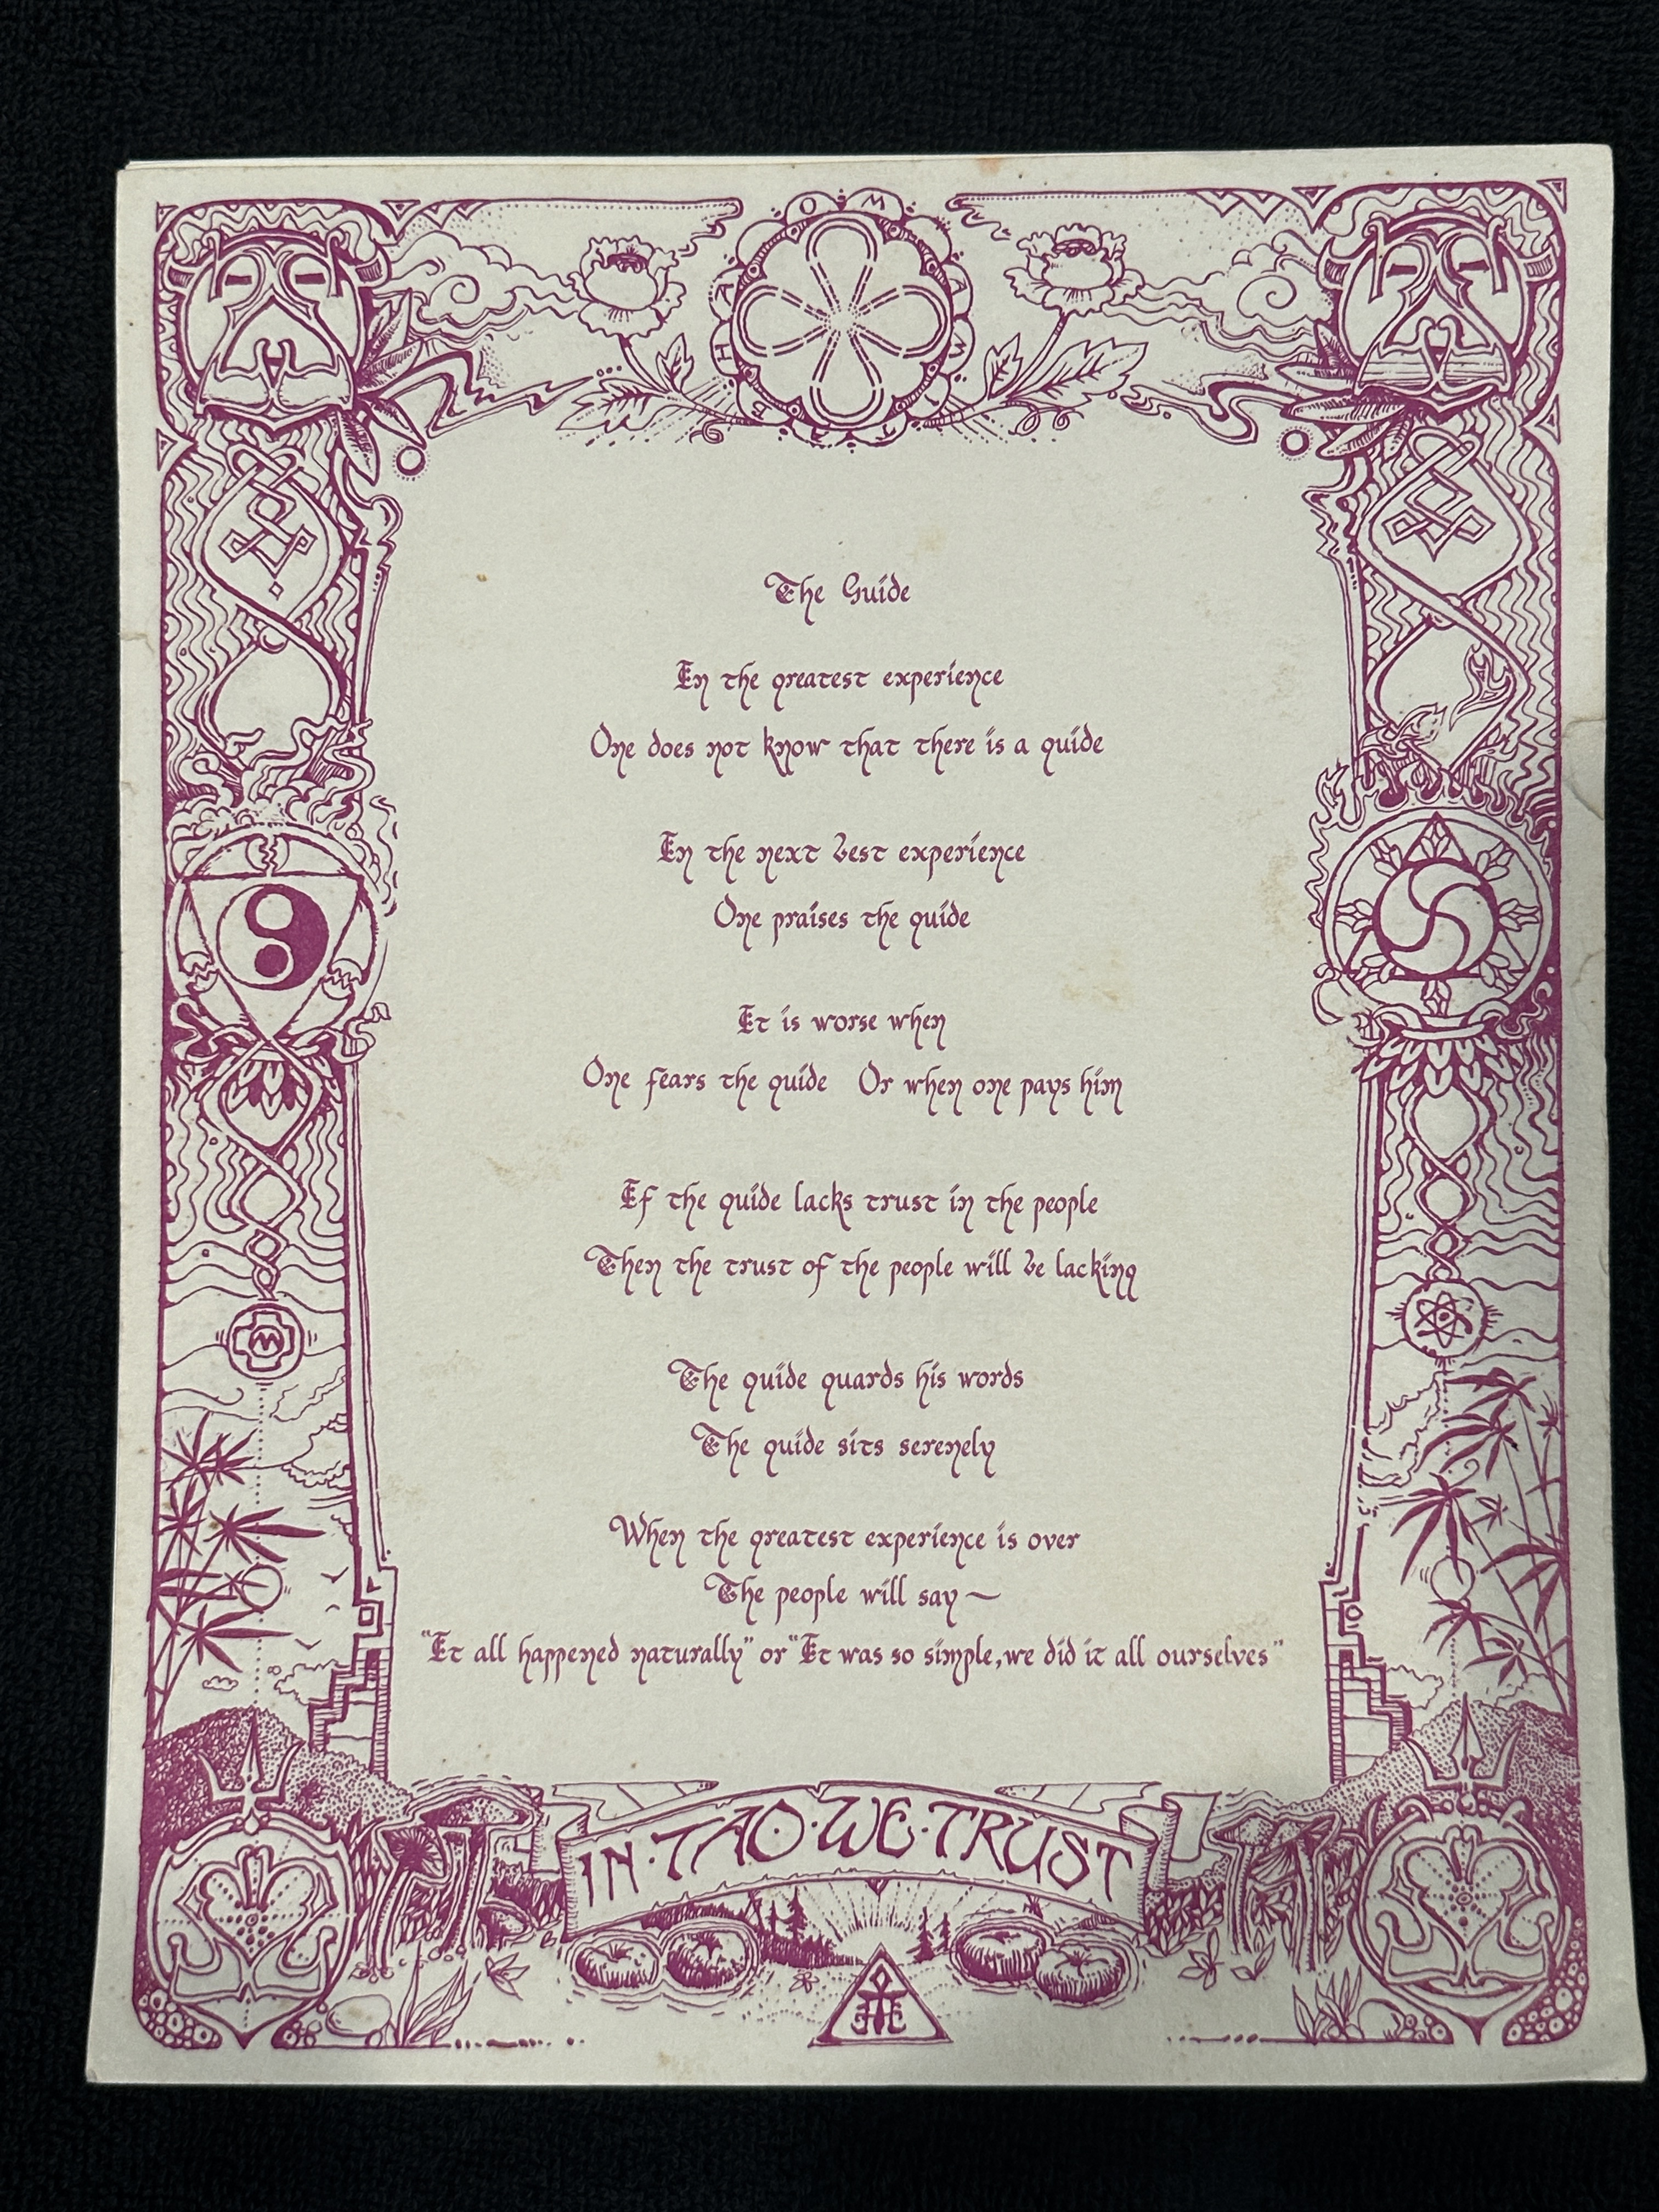 The Guide
In the greatest experience
One does not know that there is a guide
In the next best experience
One praises the guide
It is worse when
One fears the guide Or when one pays him
If the guide lacks trust in the people
Then the trust of the people will be lacking
The guide guards his words
The guide sits serenely
When the greatest experience is over
The people will say —
"It all happened naturally" or "It was so simple, we did it all ourselves"
IN · TAO · WE · TRUST